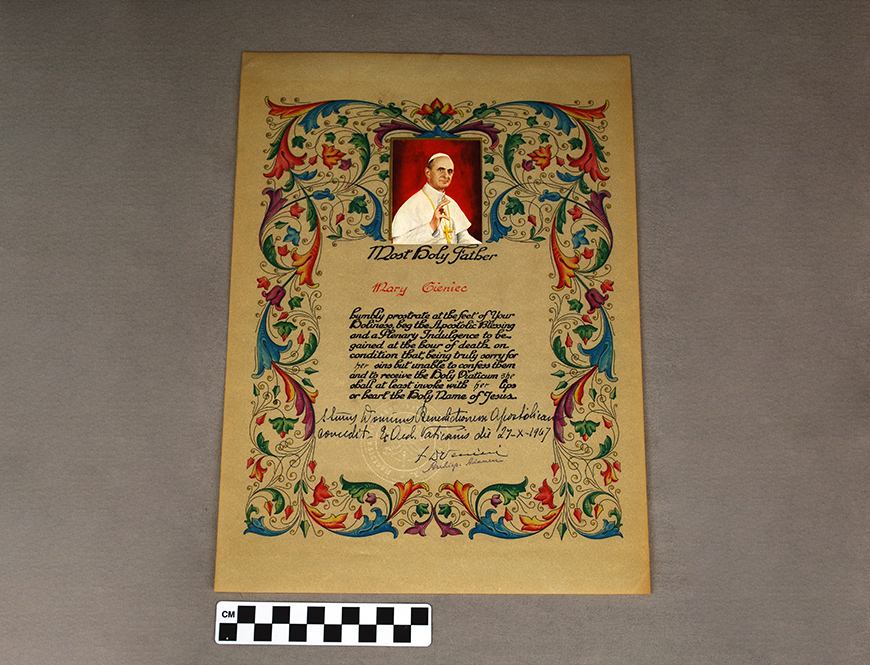 Most Holy Father
Mary Cieniec
humbly prostrate at the feet of Your
Holiness, beg the Apostolic Blessing
and a Plenary Indulgence to be
gained at the hour of death on
condition that, being truly sorry for
her sins but unable to confess them
and to receive the Holy Viaticum she
shall at least invoke with her lips
or heart the Holy Name of Jesus.
Dominus Benedictionem Apostolicam
concedit Ex Aed. Vaticanis die 27-X-1967
CM